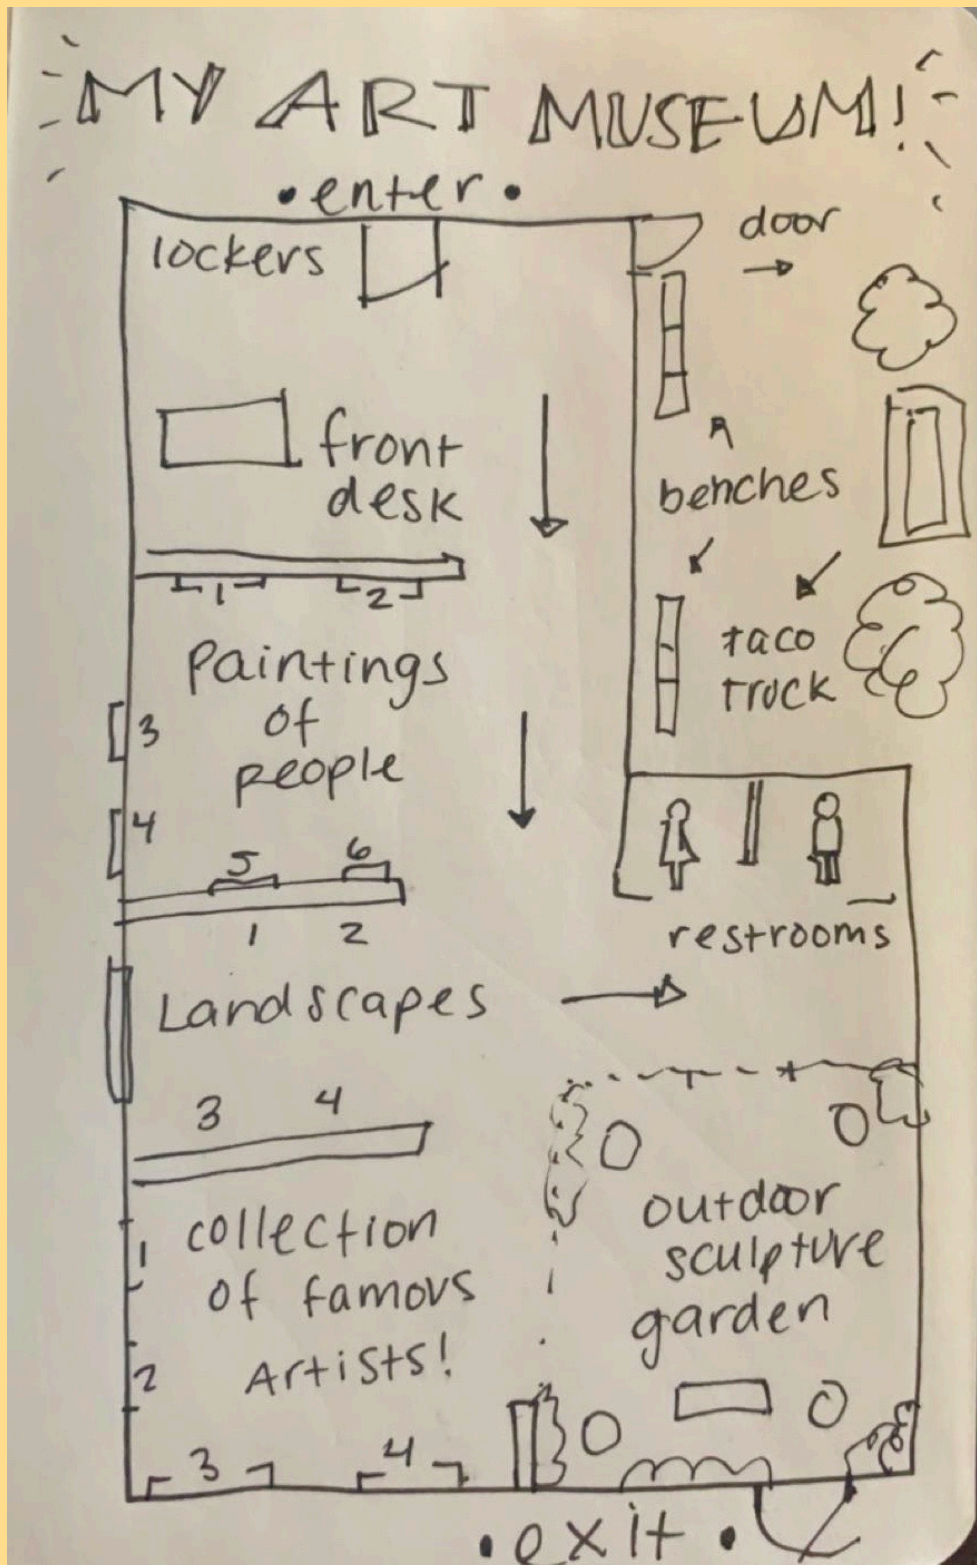 MY ART MUSEUM!
• enter •
lockers
door
front
desk
benches
1 2
Paintings
of
people
3
4
taco
truck
5 6
1 2
restrooms
Landscapes
3 4
collection
of famous
Artists!
1
2
outdoor
sculpture
garden
3 4
• exit •